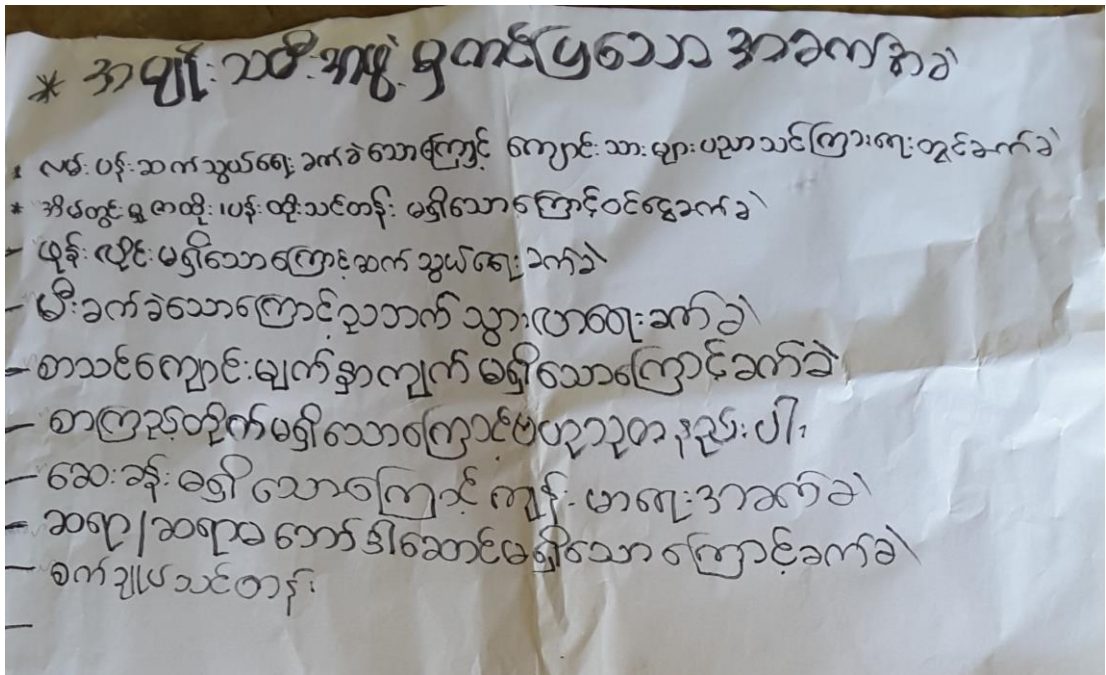 * အမျိုးသမီးအဖွဲ့မှတင်ပြသောအခက်အခဲ
* လမ်းပန်းဆက်သွယ်ရေးခက်ခဲသောကြောင့် ကျောင်းသားများပညာသင်ကြားရေးတွင်ခက်ခဲ
* အိမ်တွင်းမှု ဇာထိုး၊ပန်းထိုးသင်တန်း မရှိသောကြောင့်ဝင်ငွေခက်ခဲ
- ဖုန်းလိုင်းမရှိသောကြောင့်ဆက်သွယ်ရေးခက်ခဲ
- မီးခက်ခဲသောကြောင့်ညဘက်သွားလာရေးခက်ခဲ
- စာသင်ကျောင်းမျက်နှာကျက်မရှိသောကြောင့်ခက်ခဲ
- စာကြည့်တိုက်မရှိသောကြောင့်ဗဟုသုတနည်းပါး
- ဆေးခန်းမရှိသောကြောင့်ကျန်းမာရေးအခက်ခဲ
- ဆရာ/ဆရာမဘော်ဒါဆောင်မရှိသောကြောင့်ခက်ခဲ
- စက်ချုပ်သင်တန်း
-